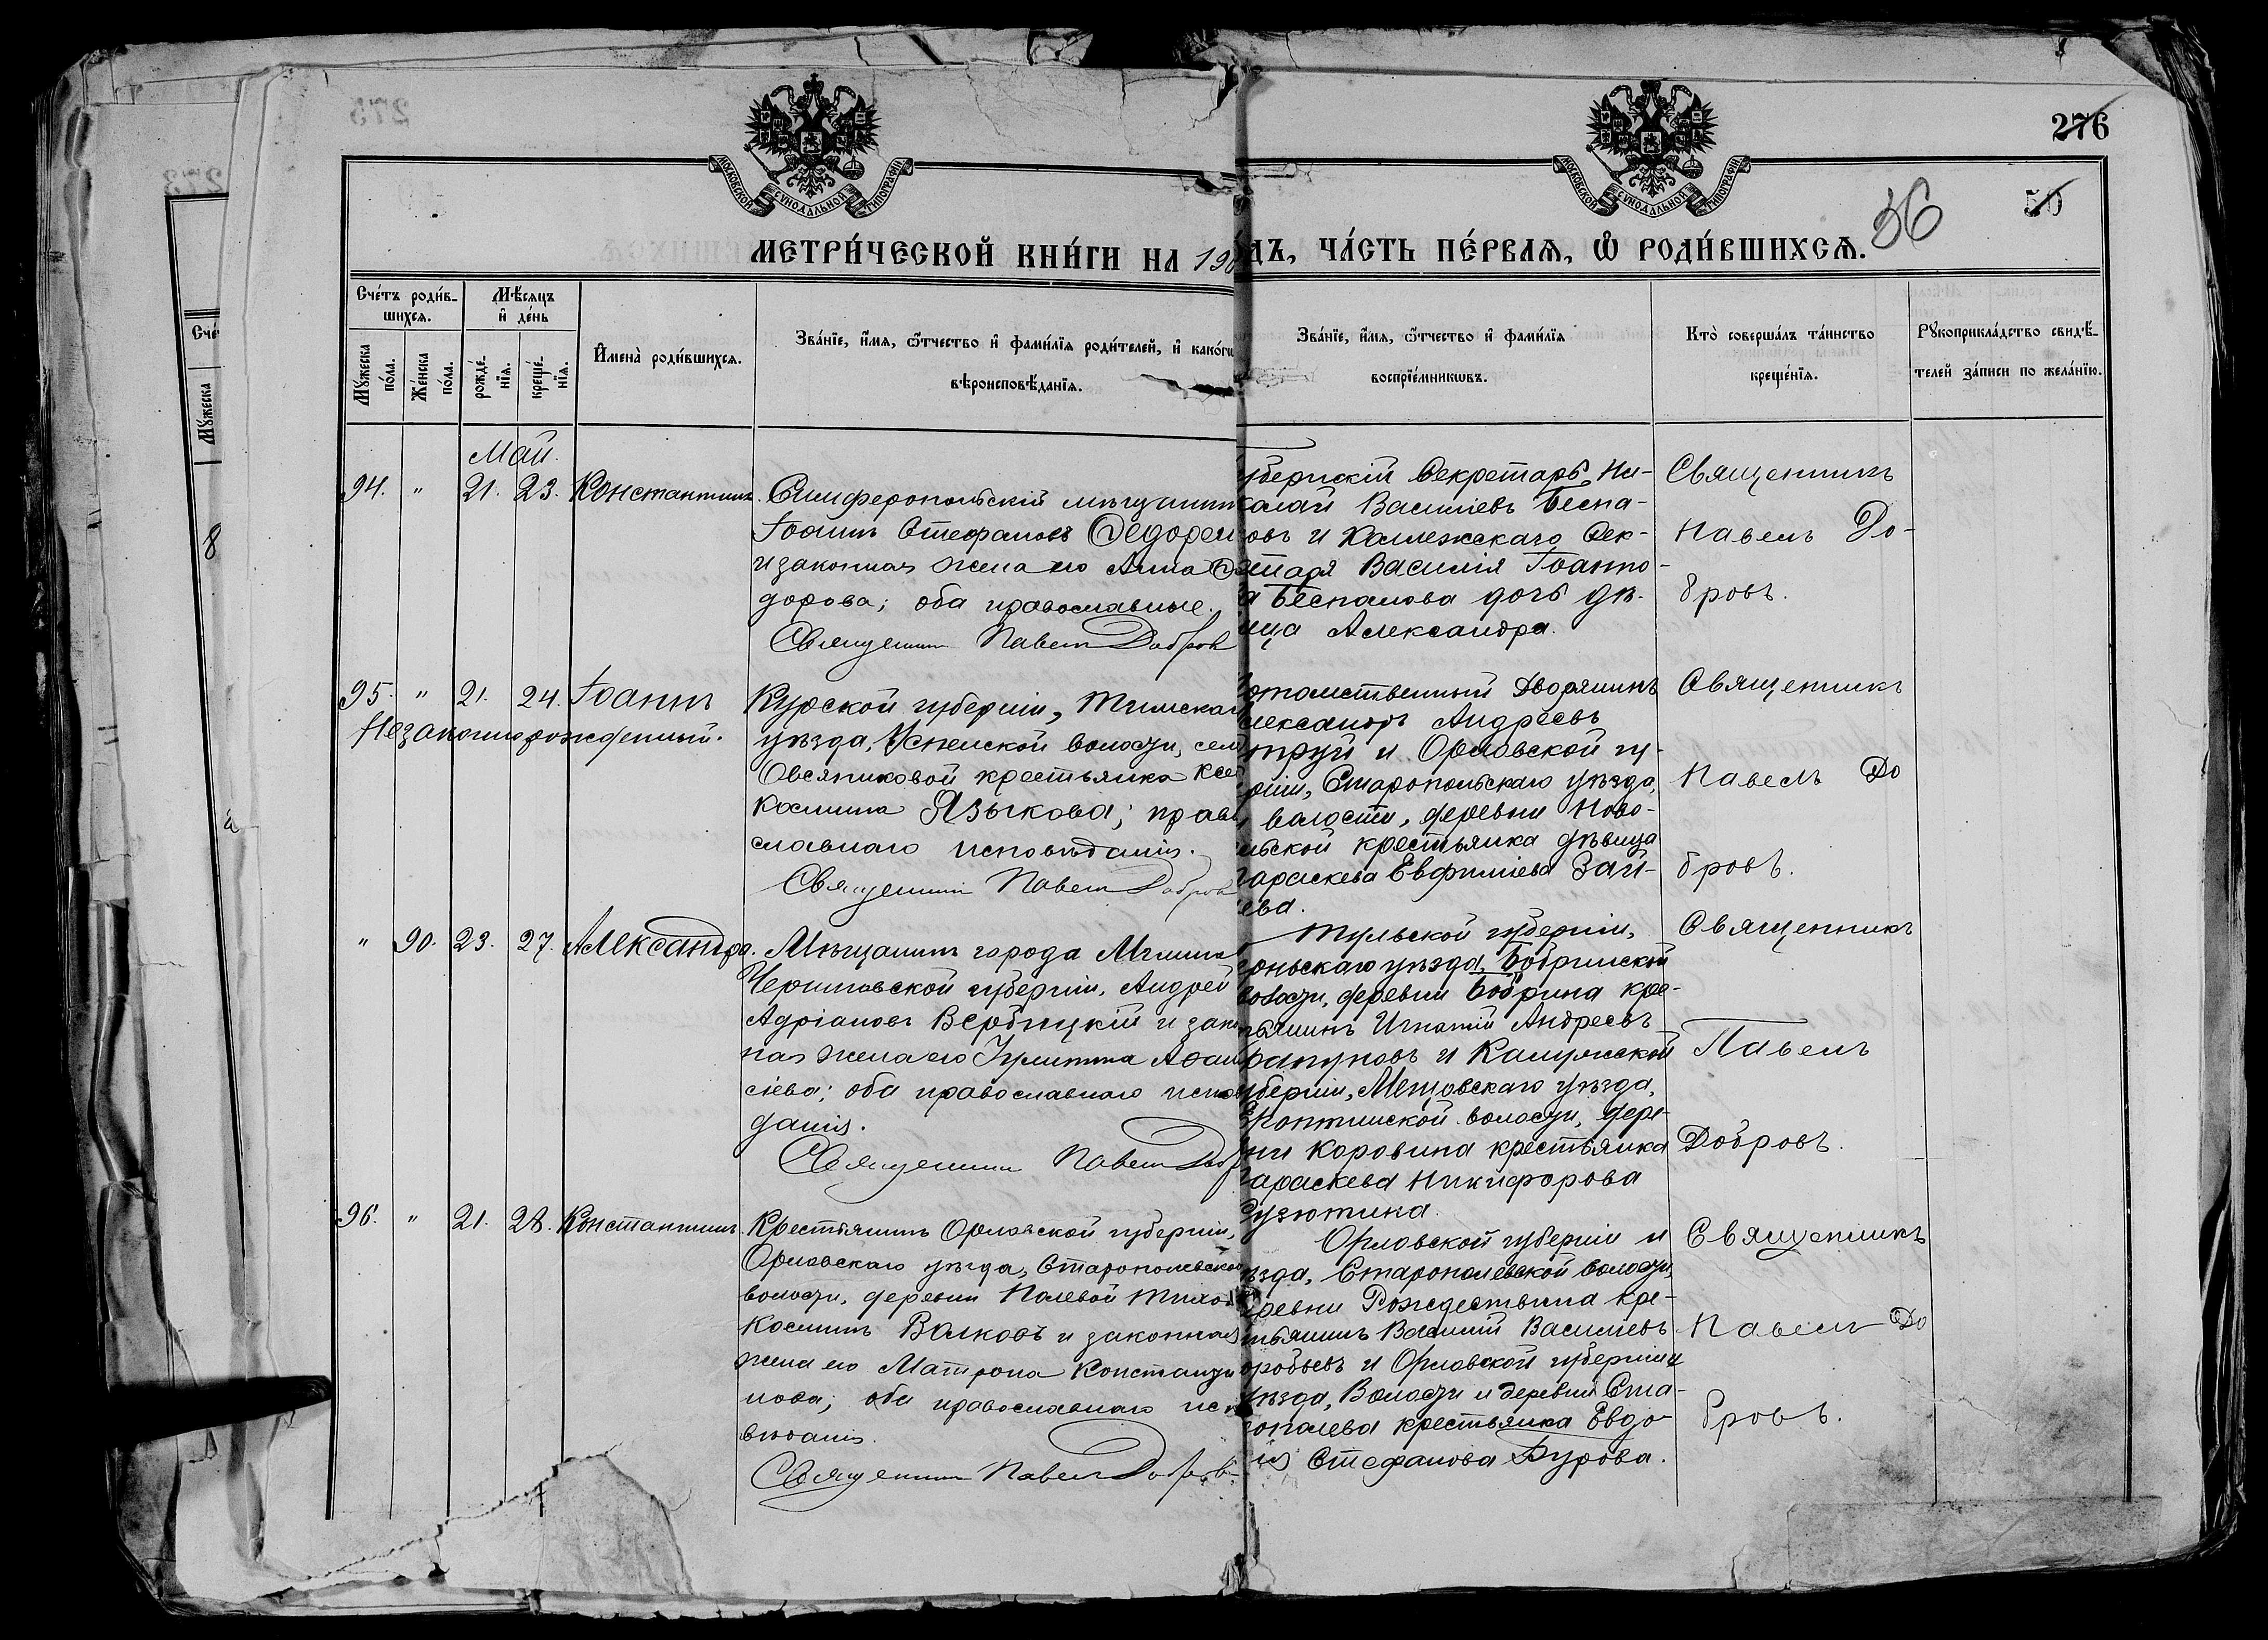 276
56
50
МОСКОВСКОЙ СѴНОДАЛЬНОЙ ТИПОГРАФІИ
МОСКОВСКОЙ СѴНОДАЛЬНОЙ ТИПОГРАФІИ
МЕТРИ́ЧЕСКОЙ КНИ́ГИ НА 190
ДЪ, ЧА́СТЬ ПЕ́РВАѦ, Ѡ҆ РОДИ́ВШИХСѦ.
Сче́тъ роди́в-
шихсѧ.
Мѣ́сѧцъ
и҆ де́нь
Мꙋ́жеска
по́ла.
Же́нска
пола.
рожде́-
нїѧ.
креще́-
нїѧ.
И҆мена̀ роди́вшихсѧ.
Зва́нїе, и҆́мѧ, ѻ҆́тчество и҆ фами́лїѧ роди́телей, и҆ како́гѡ
вѣроисповѣ́данїѧ.
Зва́нїе, и҆́мѧ, ѻ҆́тчество и҆ фами́лїѧ
воспрїе́мникѡвъ.
Кто̀ соверша́лъ та́инство
креще́нїѧ.
Рꙋкоприкла́дство свидѣ́-
телей за́писи по жела́нїю.
Май.
94. " 21. 23. Константинъ.
Симферопольскій мѣщанин
Іоаннъ Стефановъ Ѳедорен
и законная жена его Анна Ѳе
дорова; оба православные.
Священникъ Павелъ Добров
убернскій Секретарь Ни-
колай Василіевъ Беспа-
овъ и Коллежскаго Сек-
етаря Василія Іоанно-
а Беспалова дочь дѣ-
ица Александра.
Священникъ
Павелъ До-
бровъ.
95. " 21. 24. Іоаннъ
Незаконнорожденный.
Курской губерніи, Тимскаго
уѣзда, Успенской волости, сел
Овсяниковой крестьянка Ксе
Космина Языкова; право
славнаго исповѣданія.
Священникъ Павелъ Добров
отомственный Дворянинъ
лександръ Андреевъ
труй и Орловской гу-
рніи, Старопольскаго уѣзда,
волости, деревни Ново-
льской крестьянка дѣвица
араскева Евфиміева Зай-
ева.
Священникъ
Павелъ До
бровъ.
" 90. 23. 27. Александра.
Мѣщанинъ города Мглина
Черниговской губерніи, Андрей
Адріановъ Вербицкій и закон
ная жена его Іулитта Аѳана
сіева; оба православнаго испов
данія.
Священникъ Павелъ Добр
Тульской губерніи,
оньскаго уѣзда, Бобринской
волости, деревни Бобрина кре-
тьянинъ Игнатій Андреевъ
рапуновъ и Калужской
уберніи, Мещовскаго уѣзда,
волости, дере-
ни Коровина крестьянка
араскева Никифорова
Священникъ
Павелъ
Добровъ.
96. " 21. 28. Константинъ.
Крестьянинъ Орловской губерніи,
Орловскаго уѣзда, Старополевской
волости, деревни Полевой Тихон
Косминъ Волковъ и законная
жена его Матрона Константи
нова; оба православнаго испо
вѣданія.
Священникъ Павелъ Добровъ
Орловской губерніи и
ѣзда, Старополевской волости,
еревни Рождествина кре-
тьянинъ Василій Василіевъ
оробьевъ и Орловской губерніи и
уѣзда, Волости и деревни Ста-
ополева крестьянка Евдо-
ія Стефанова Бурова.
Священникъ
Павелъ До
бровъ.